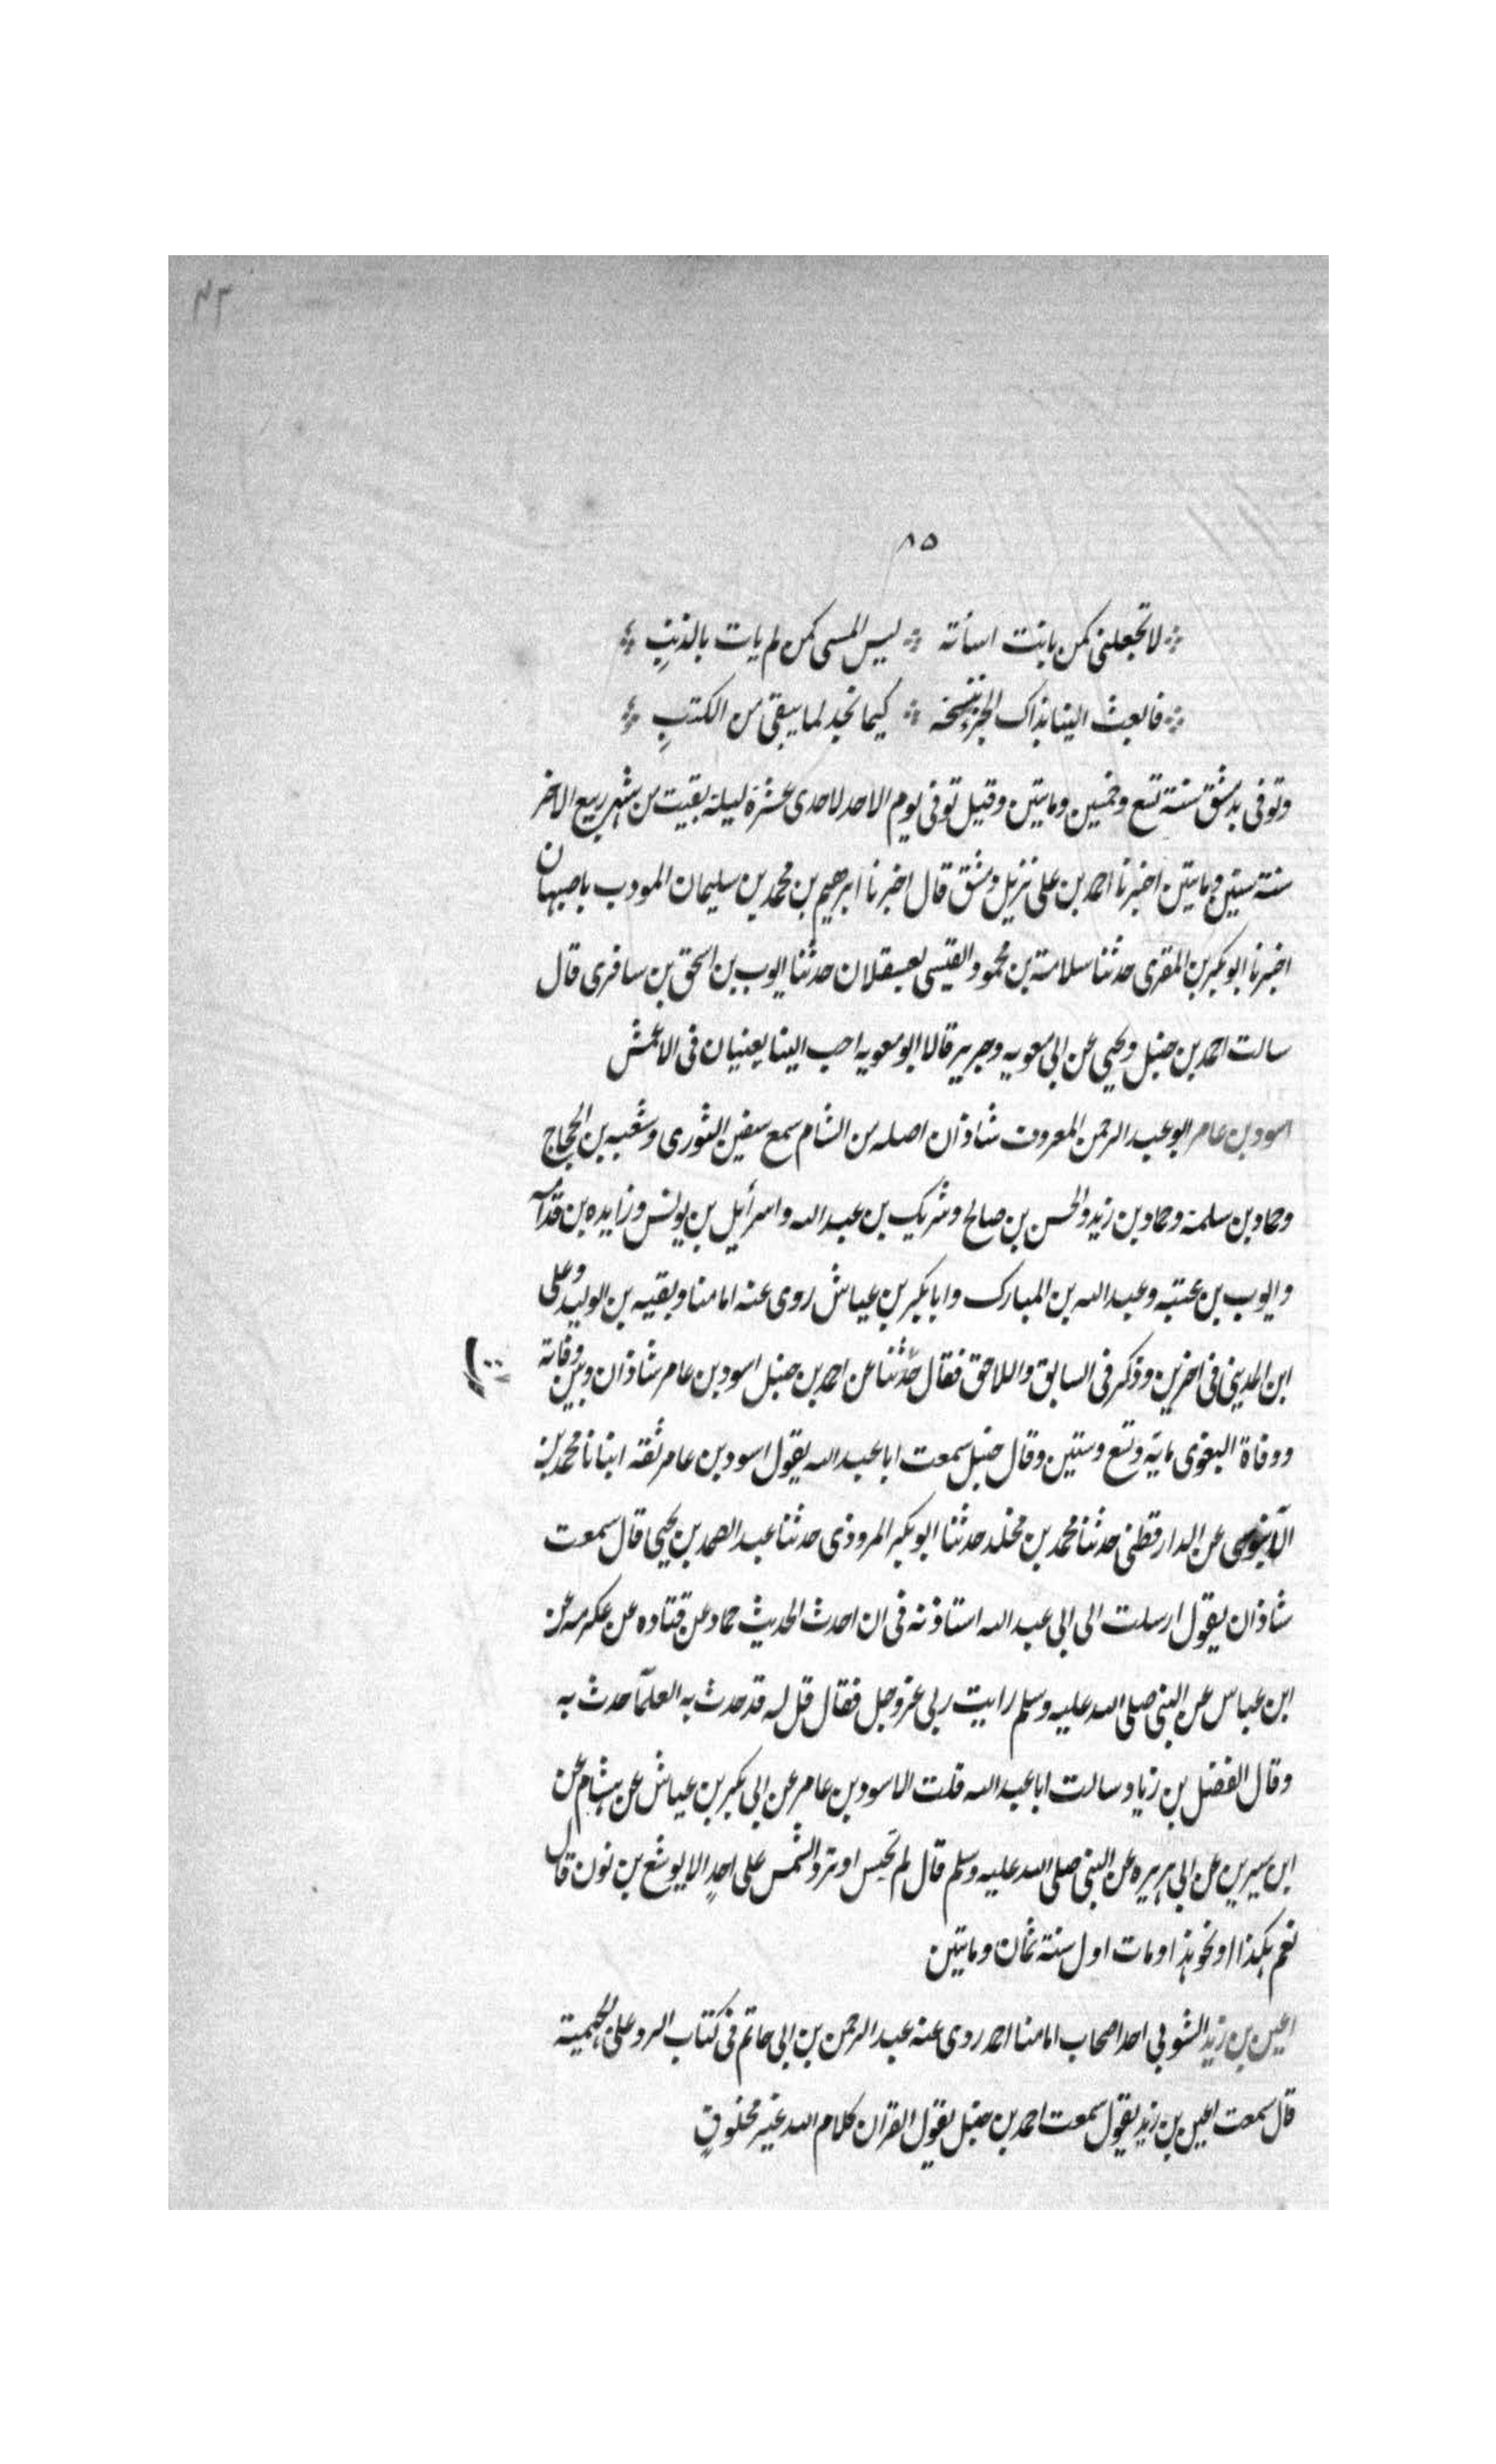 ٤٣
٨٥
لا تجعلني كمن بانت اساته ليس المسي كمن لم يات بالذنبِ
فابعث الينا بذاك الجزء ننسخه كيما نجد لما يبقى من الكتبِ
وتوفى بدمشق سنة تسع وخمسين ومايتين وقيل توفى يوم الاحد لاحدى عشرة ليلة بقيت من شهر ربيع الاخر
سنة ستين ومايتين اخبرنا احمد بن على نزيل دمشق قال اخبرنا ابرهيم بن محمد بن سليمان المودب باصبهان
اخبرنا ابو بكر بن المقرى حدثنا سلامة بن محمود القيسى بعسقلان حدثنا ايوب بن اسحق بن سافرى قال
سالت احمد بن حنبل ويحيى عن ابى معويه وجرير قالا ابو معويه احب الينا يعنيان فى الاعمش
اسود بن عامر ابو عبد الرحمن المعروف شاذان اصله من الشام سمع سفين الثورى وشعبه بن الحجاج
وحماد بن سلمة وحماد بن زيد والحسن بن صالح وشريك بن عبد الله واسرأيل بن يونس وزايده بن قدامه
وايوب بن عتبه وعبد الله بن المبارك وابا بكر بن عياش روى عنه امامنا وبقيه بن الوليد وعلى
ابن المدينى فى اخرين وذكر فى السابق واللاحق فقال حدثنا عن احمد بن حنبل اسود بن عامر شاذان وبين وفاته
ووفاة البغوى مايه وتسع وستين وقال حنبل سمعت ابا عبد الله يقول اسود بن عامر ثقه انبانا محمد بن
الآبنوسى عن الدارقطنى حدثنا محمد بن مخلد حدثنا ابو بكر المروذى حدثنا عبد الصمد بن يحيى قال سمعت
شاذان يقول ارسلت الى ابى عبد الله استاذنه فى ان احدث الحديث حماد عن قتاده عن عكرمه عن
ابن عباس عن النبى صلى الله عليه وسلم رايت ربى عز وجل فقال قل له قد حدث به العلمآ حدث به
وقال الفضل بن زياد سالت ابا عبد الله قلت الاسود بن عامر عن ابى بكر بن عياش عن هشام عن
ابن سيرين عن ابى هريره عن النبى صلى الله عليه وسلم قال لم تحبس او ترد الشمس على احدٍ الا يوشع بن نون قال
نعم هكذا او نحو هذا ومات اول سنة ثمان ومايتين
اعين بن زيد الشوبى احد اصحاب امامنا احمد روى عنه عبد الرحمن بن ابى حاتم فى كتاب الرد على الجهمية
قال سمعت اعين بن زيد يقول سمعت احمد بن حنبل يقول القران كلام الله غير مخلوقٍ